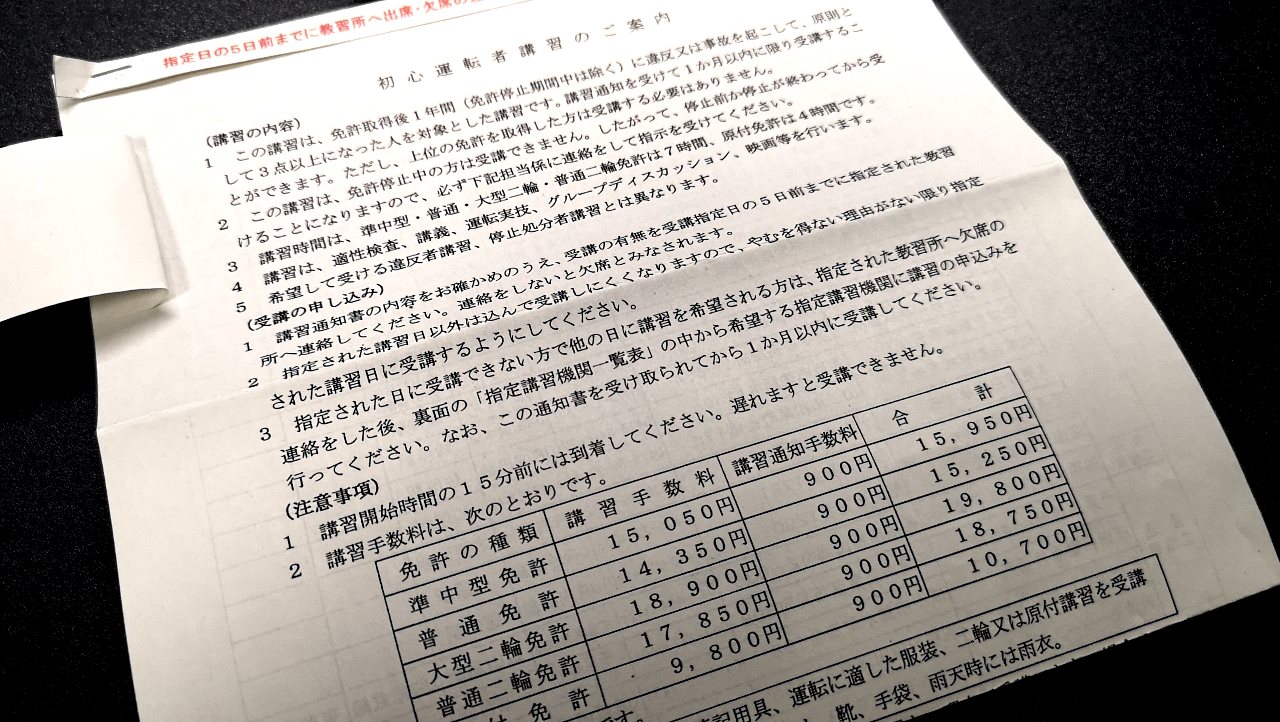 指定日の5日前までに教習所へ出席・欠席の
初心運転者講習のご案内
(講習の内容)
1 この講習は、免許取得後1年間(免許停止期間中は除く)に違反又は事故を起こして、原則と
して3点以上になった人を対象とした講習です。講習通知を受けて1か月以内に限り受講するこ
とができます。ただし、上位の免許を取得した方は受講する必要はありません。
2 この講習は、免許停止中の方は受講できません。したがって、停止前か停止が終わってから受
けることになりますので、必ず下記担当係に連絡をして指示を受けてください。
3 講習時間は、準中型・普通・大型二輪・普通二輪免許は7時間、原付免許は4時間です。
4 講習は、適性検査、講義、運転実技、グループディスカッション、映画等を行います。
5 希望して受ける違反者講習、停止処分者講習とは異なります。
(受講の申し込み)
1 講習通知書の内容をお確かめのうえ、受講の有無を受講指定日の5日前までに指定された教習
所へ連絡してください。連絡をしないと欠席とみなされます。
2 指定された講習日以外は込んで受講しにくくなりますので、やむを得ない理由がない限り指定
された講習日に受講するようにしてください。
3 指定された日に受講できない方で他の日に講習を希望される方は、指定された教習所へ欠席の
連絡をした後、裏面の「指定講習機関一覧表」の中から希望する指定講習機関に講習の申込みを
行ってください。なお、この通知書を受け取られてから1か月以内に受講してください。
(注意事項)
1 講習開始時間の15分前には到着してください。遅れますと受講できません。
2 講習手数料は、次のとおりです。
免許の種類 講習手数料 講習通知手数料 合計
準中型免許 15,050円 900円 15,950円
普通免許 14,350円 900円 15,250円
大型二輪免許 18,900円 900円 19,800円
普通二輪免許 17,850円 900円 18,750円
付免許 9,800円 900円 10,700円
です。
記用具、運転に適した服装、二輪又は原付講習を受講
靴、手袋、雨天時には雨衣。